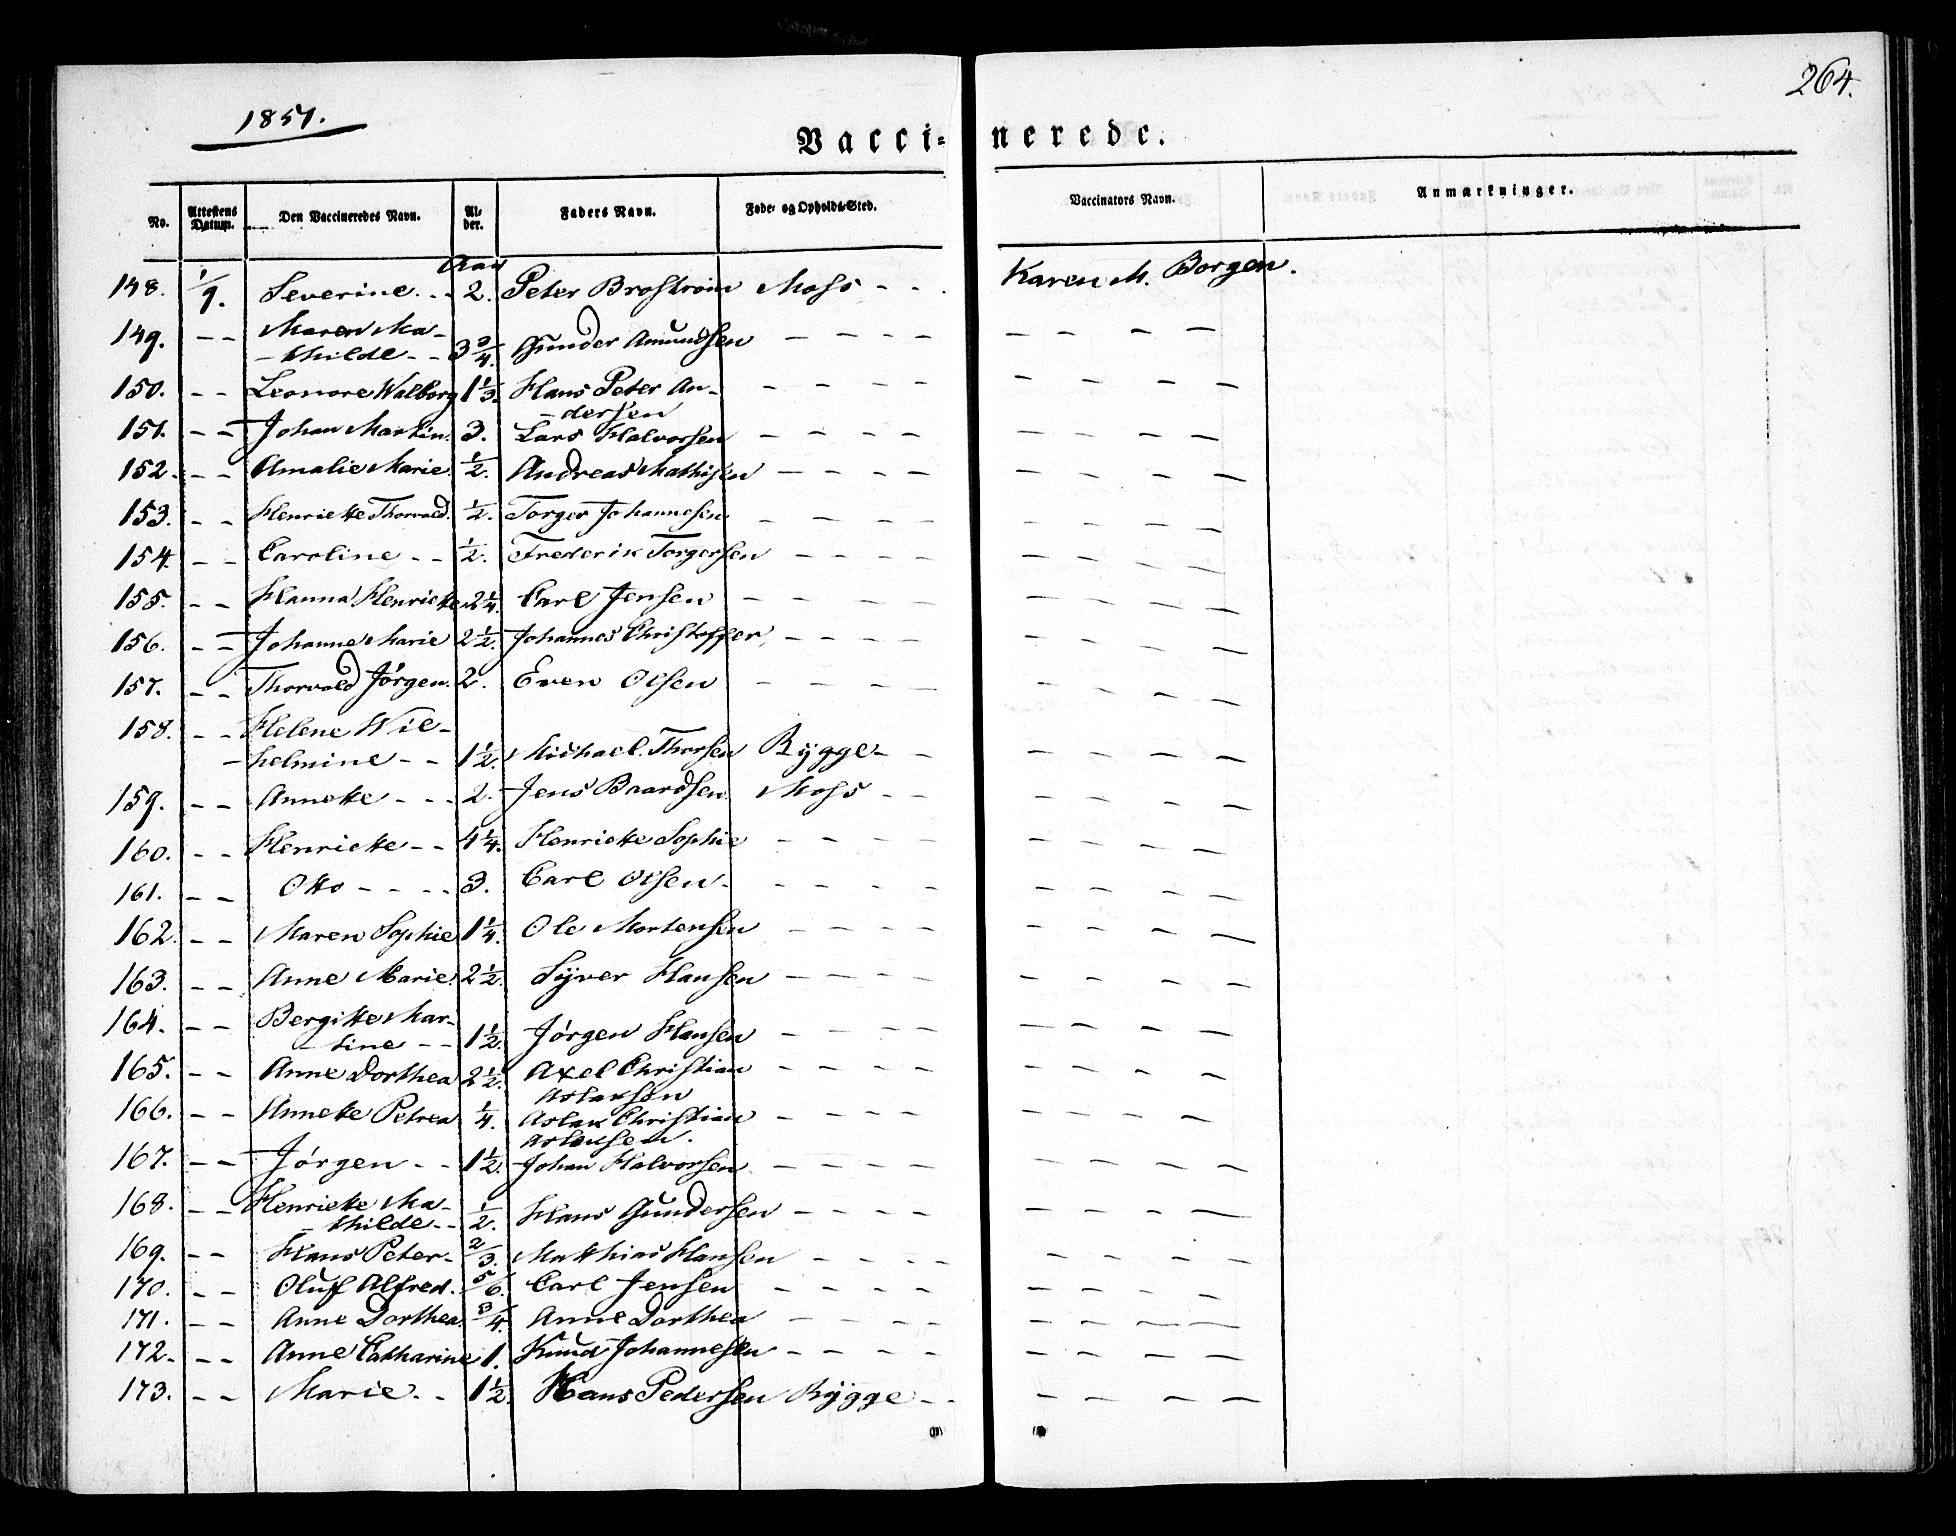 1851.
264.
Vacci= nerede.
No. Attestens Datum. Den Vaccineredes Navn. Al-der. Faders Navn. Føde- og Opholds-Sted. Vaccinators Navn. Anmærkninger.
Aar
148. 1/9. Severine. - - 2. Peter Broström Moss - - - Karen M. Borgen.
149. - - Maren Ma-
- thilde - - 3 3/4. Gunder Amundsen - - - - - - - -
150. - - Leonore Walborg 1 1/3. Hans Peter An- - - - - - - - -
- dersen
151. - - Johan Martin. 3. Lars Halvorsen - - - - - - - -
152. - - Amalie Marie. 1/2. Andreas Mathisen - - - - - - - -
153. - - Henriette Thorvald. 1/2. Torger Johannesen - - - - - - - -
154. - - Caroline - - 1/2. Frederik Torgersen - - - - - - - -
155. - - Hanna Henriette 2 1/4. Carl Jensen - - - - - - - - -
156. - - Johanne Marie 2 1/2. Johannes Christoffer, - - - - - - - -
157. - - Thorvald Jörgen. 2. Even Olsen - - - - - - - - -
158. - - Helene Wil-
- helmine - - 1 1/2. Michael Thorsen Rygge - - - - - -
159. - - Annette - - - 2. Jens Baardsen. Moss - - - - - -
160. - - Henriette - - 4 1/4. Henriette Sophie - - - - - - - -
161. - - Otto - - - - 3. Carl Olsen - - - - - - - - -
162. - - Maren Sophie 1 1/4. Ole Mortensen - - - - - - - -
163. - - Anne Marie. 2 1/2. Syver Hansen - - - - - - - -
164. - - Bergitte Mar-
- tine - - 1 1/2. Jörgen Hansen - - - - - - - -
165. - - Anne Dorthea 2 1/2. Axel Christian - - - - - - - -
Aslaksen
166. - - Annette Petrea 1/4. Aslak Christian - - - - - - - -
Aslaksen.
167. - - Jörgen - - 1 1/2. Johan Halvorsen - - - - - - - -
168. - - Henriette Ma-
- thilde - - 1/2. Hans Gundersen - - - - - - - -
169. - - Hans Peter - 2/3. Matthias Hansen - - - - - - - -
170. - - Oluf Alfred. - 5/6. Carl Jensen - - - - - - - -
171. - - Anne Dorthea. 3/4. Anne Dorthea - - - - - - - -
172. - - Anne Catharine 1. Knud Johannesen - - - - - - - -
173. - - Marie. - - 1 1/2. Hans Pedersen Rygge - - - - - -